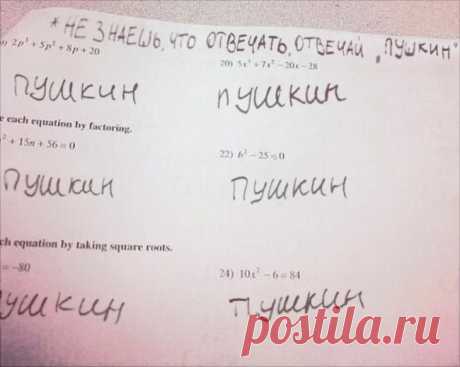 * НЕ ЗНАЕШЬ, ЧТО ОТВЕЧАТЬ, ОТВЕЧАЙ „ПУШКИН“
2p³ + 5p² + 8p + 20
20) 5x³ + 7x² − 20x − 28
ПУШКИН
ПУШКИН
each equation by factoring.
+ 15n + 56 = 0
22) b² − 25 = 0
ПУШКИН
ПУШКИН
equation by taking square roots.
= −80
24) 10x² − 6 = 84
ПУШКИН
ПУШКИН
postila.ru